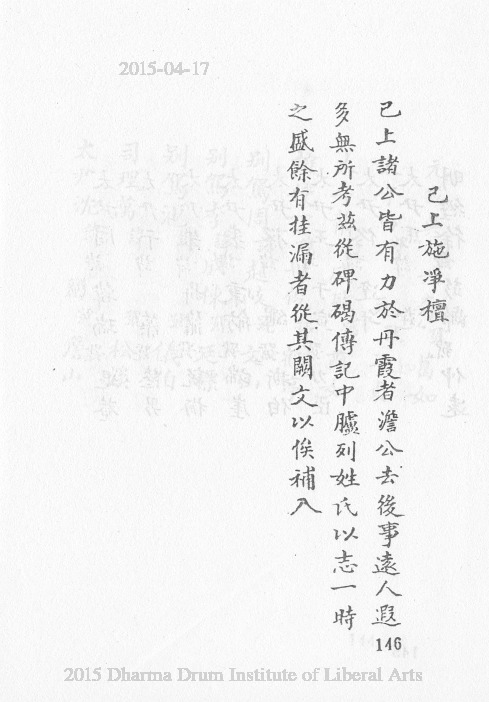 2015-04-17
已上施淨檀
已上諸公皆有力於丹霞者澹公去後事遠人遐
多無所考茲從碑碣傳記中臚列姓氏以志一時
之盛餘有挂漏者從其闕文以俟補入
146
2015 Dharma Drum Institute of Liberal Arts